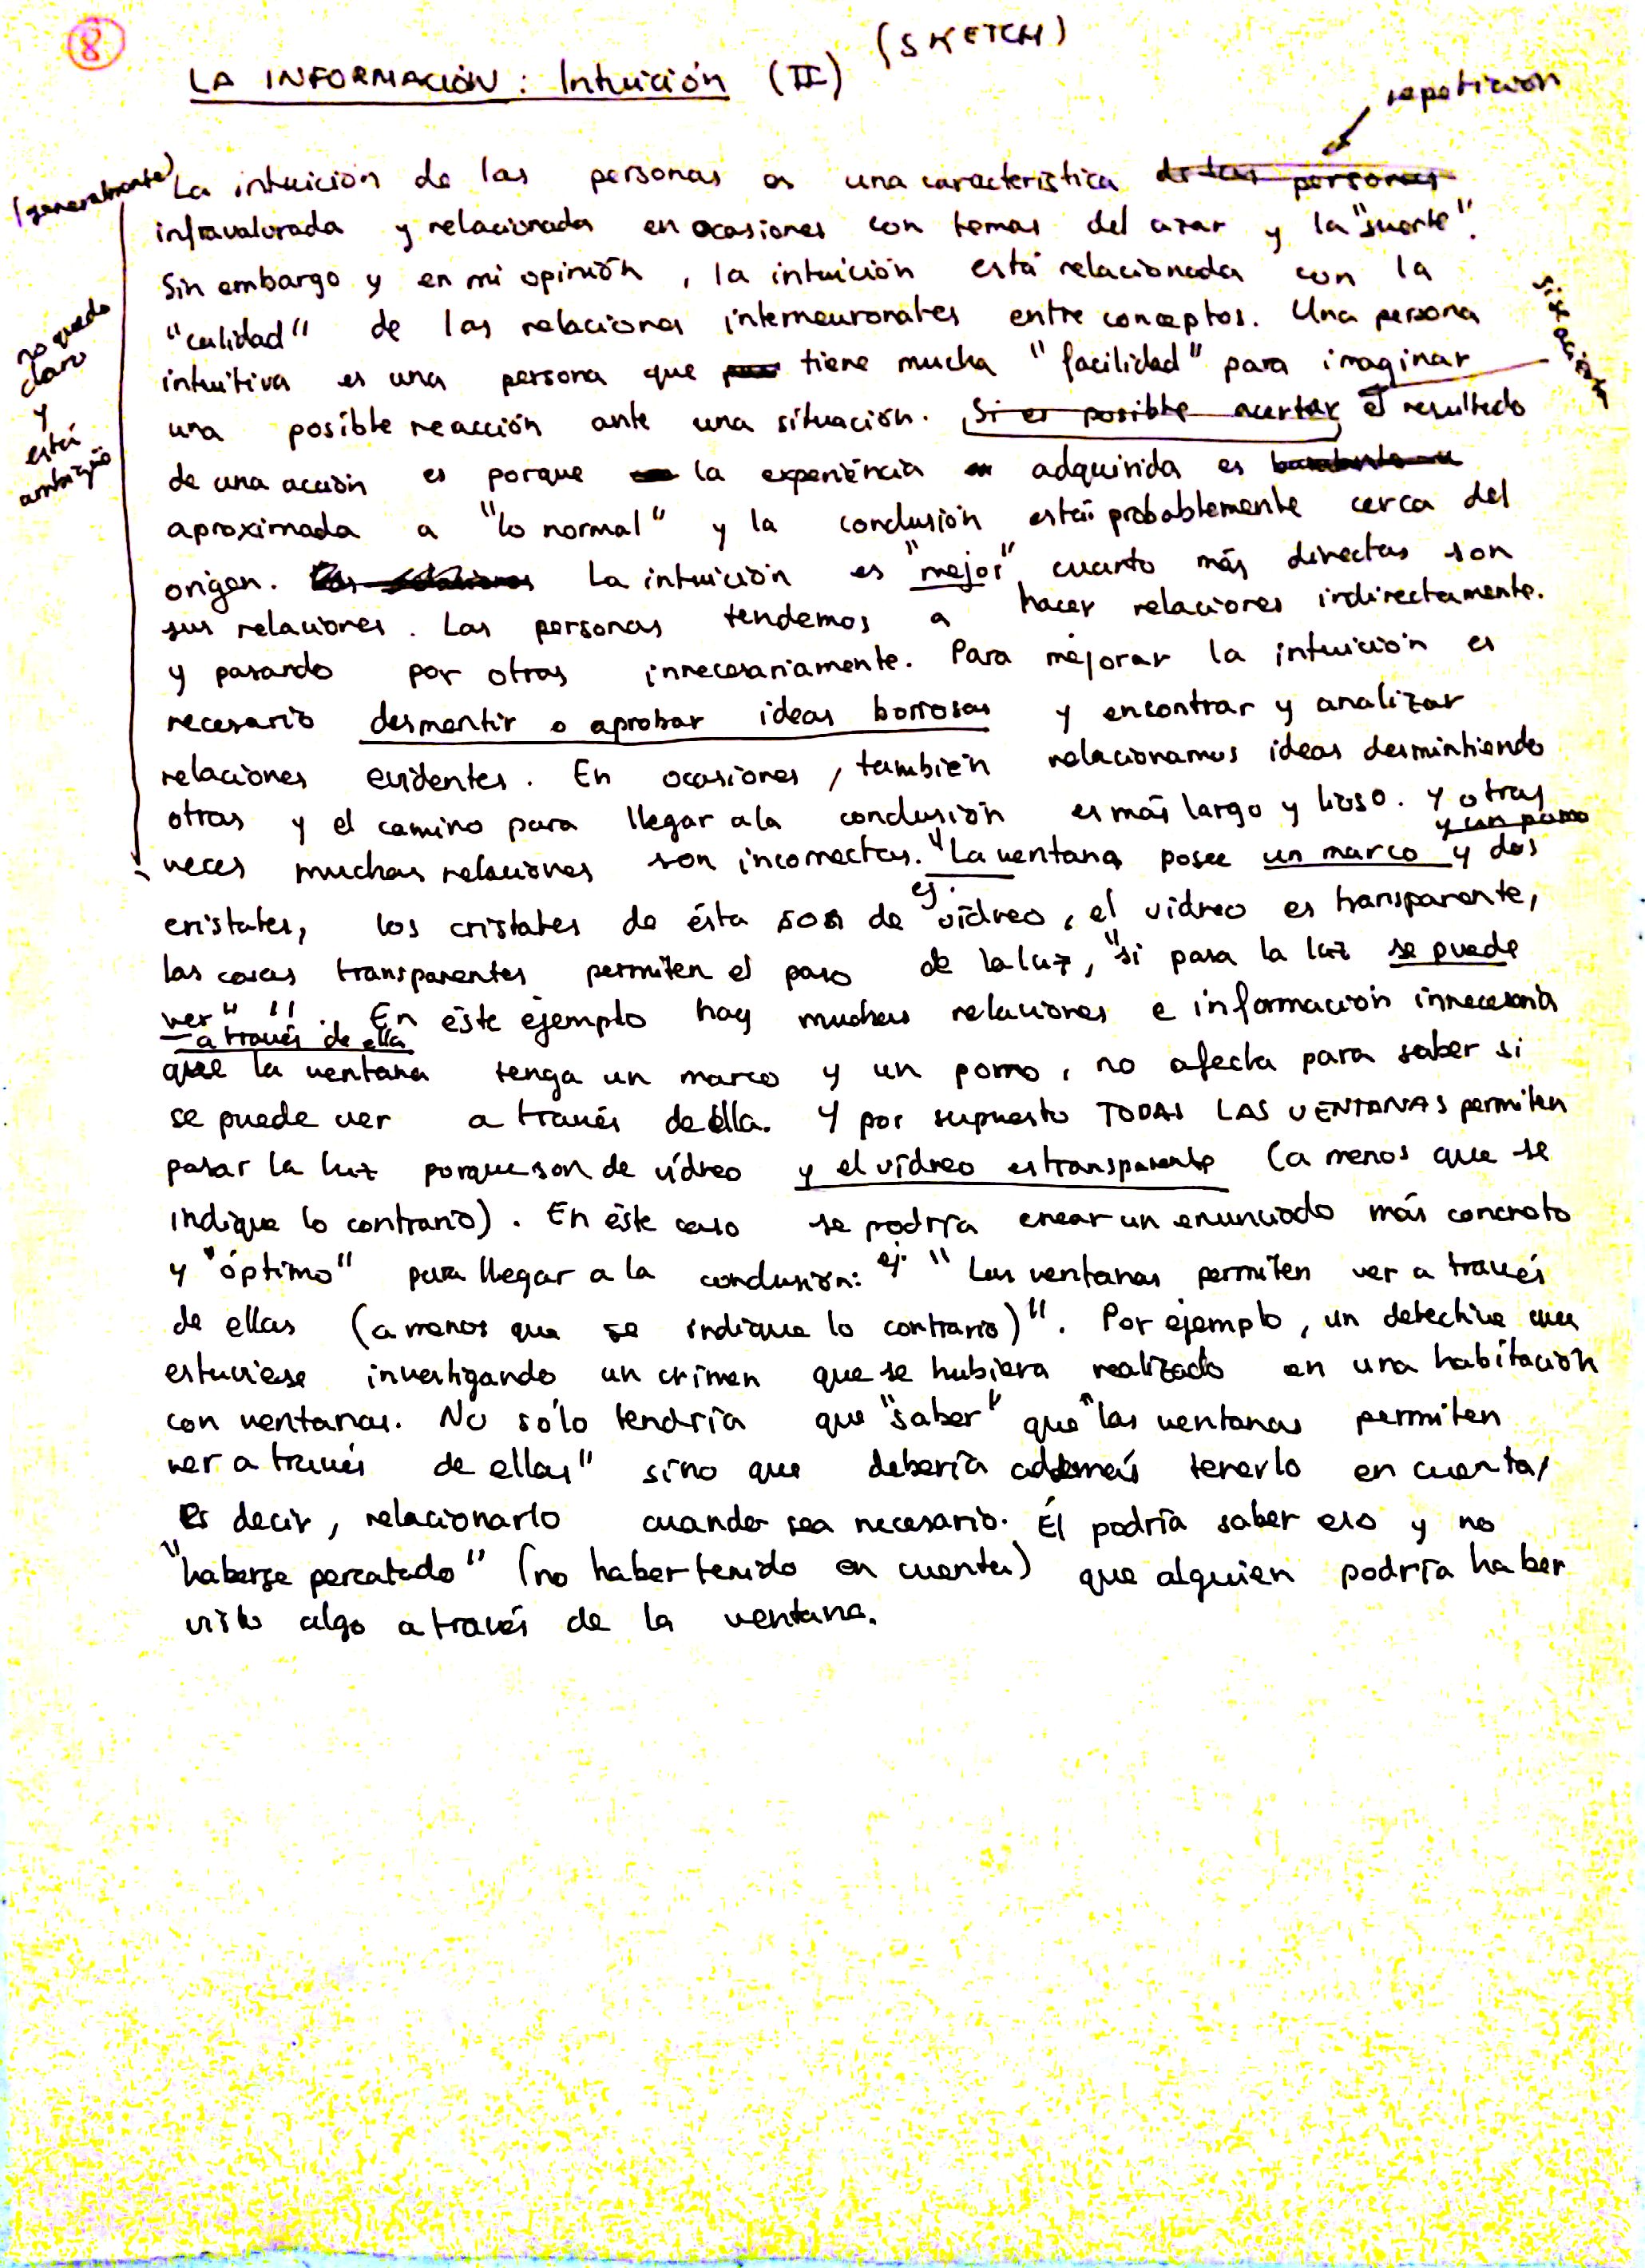 8
(SKETCH)
LA INFORMACIÓN: Intuición (II)
repetición
(generalmente)
La intuición de las personas es una característica de las personas
infravalorada y relacionada en ocasiones con temas del azar y la "suerte".
Sin embargo y en mi opinión, la intuición está relacionada con la
"calidad" de las relaciones interneuronales entre conceptos. Una persona
intuitiva es una persona que tiene mucha "facilidad" para imaginar
una posible reacción ante una situación. Si es posible acertar el resultado
de una acción es porque la experiéncia adquirida es
aproximada a "lo normal" y la conclusión está probablemente cerca del
origen. La intuición es "mejor" cuanto más directas son
sus relaciones. Las personas tendemos a hacer relaciones indirectamente.
y pasando por otras innecesariamente. Para mejorar la intuición es
necesario desmentir o aprobar ideas borrosas y encontrar y analizar
relaciones evidentes. En ocasiones, también relacionamos ideas desmintiendo
otras y el camino para llegar a la conclusión es más largo y lioso. Y otras
veces muchas relaciones son incorrectas. "La ventana posee un marco y dos
y un pomo
ej.
cristales, los cristales de ésta son de vídreo, el vidreo es transparente,
las cosas transparentes permiten el paso de la luz, "si pasa la luz se puede
ver" ". En éste ejemplo hay muchas relaciones e información innecesaria
a través de ella
que la ventana tenga un marco y un pomo, no afecta para saber si
se puede ver a través de ella. Y por supuesto TODAS LAS VENTANAS permiten
pasar la luz porque son de vídreo y el vídreo es transparente (a menos que se
indique lo contrario). En éste caso se podría crear un enunciado más concreto
y "óptimo" para llegar a la conclusión: ej. "Las ventanas permiten ver a través
de ellas (a menos que se indique lo contrario)". Por ejemplo, un detective que
estuviese investigando un crimen que se hubiera realizado en una habitación
con ventanas. No sólo tendría que "saber" que "las ventanas permiten
ver a través de ellas" sino que debería además tenerlo en cuenta,
es decir, relacionarlo cuando sea necesario. Él podría saber eso y no
"haberse percatado" (no haber tenido en cuenta) que alguien podría haber
visto algo a través de la ventana.
no queda
claro
y
está
ambiguo